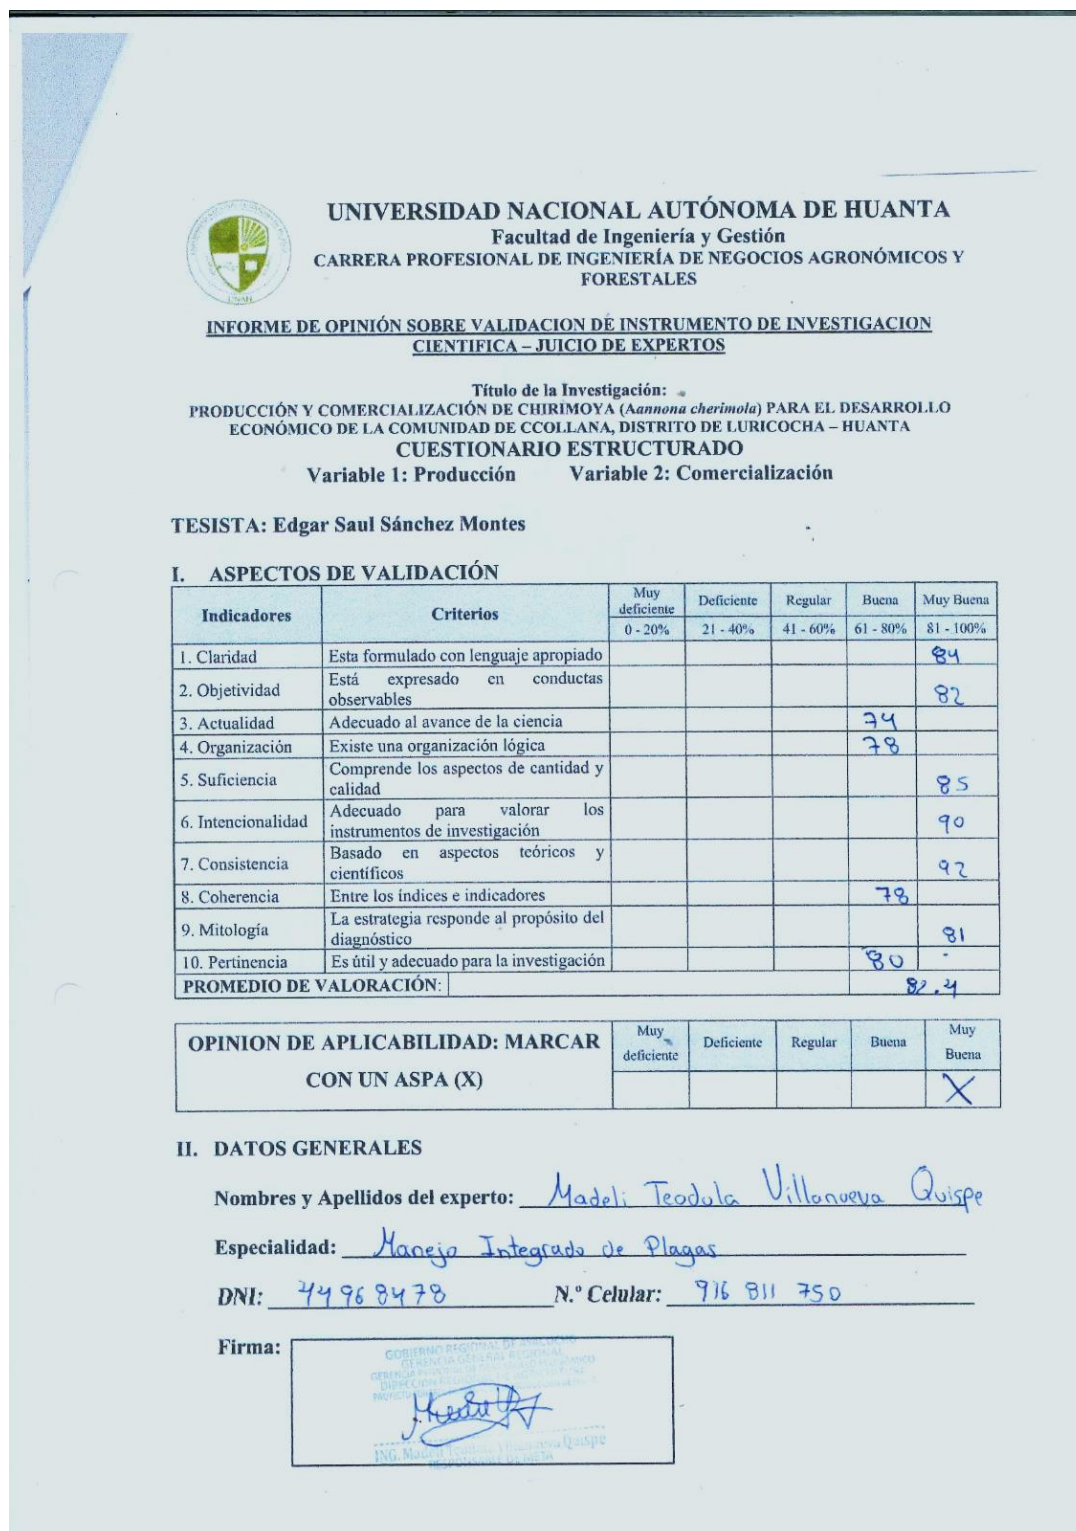 UNIVERSIDAD NACIONAL AUTÓNOMA DE HUANTA
Facultad de Ingeniería y Gestión
CARRERA PROFESIONAL DE INGENIERÍA DE NEGOCIOS AGRONÓMICOS Y
FORESTALES
UNAH
INFORME DE OPINIÓN SOBRE VALIDACION DE INSTRUMENTO DE INVESTIGACION
CIENTIFICA – JUICIO DE EXPERTOS
Título de la Investigación:
PRODUCCIÓN Y COMERCIALIZACIÓN DE CHIRIMOYA (Aannona cherimola) PARA EL DESARROLLO
ECONÓMICO DE LA COMUNIDAD DE CCOLLANA, DISTRITO DE LURICOCHA – HUANTA
CUESTIONARIO ESTRUCTURADO
Variable 1: Producción Variable 2: Comercialización
TESISTA: Edgar Saul Sánchez Montes
I. ASPECTOS DE VALIDACIÓN
Indicadores Criterios Muy deficiente Deficiente Regular Buena Muy Buena
0 - 20% 21 - 40% 41 - 60% 61 - 80% 81 - 100%
1. Claridad Esta formulado con lenguaje apropiado 84
2. Objetividad Está expresado en conductas
observables 82
3. Actualidad Adecuado al avance de la ciencia 74
4. Organización Existe una organización lógica 78
5. Suficiencia Comprende los aspectos de cantidad y
calidad 85
6. Intencionalidad Adecuado para valorar los
instrumentos de investigación 90
7. Consistencia Basado en aspectos teóricos y
científicos 92
8. Coherencia Entre los índices e indicadores 78
9. Mitología La estrategia responde al propósito del
diagnóstico 81
10. Pertinencia Es útil y adecuado para la investigación 80
PROMEDIO DE VALORACIÓN: 82.4
OPINION DE APLICABILIDAD: MARCAR
CON UN ASPA (X)
Muy deficiente Deficiente Regular Buena Muy Buena
X
II. DATOS GENERALES
Nombres y Apellidos del experto: Madeli Teodula Villanueva Quispe
Especialidad: Manejo Integrado de Plagas
DNI: 44968478 N.º Celular: 916 811 750
Firma:
GOBIERNO REGIONAL DE AYACUCHO
GERENCIA GENERAL REGIONAL
ING. Madeli Teodula Villanueva Quispe
RESPONSABLE DE META